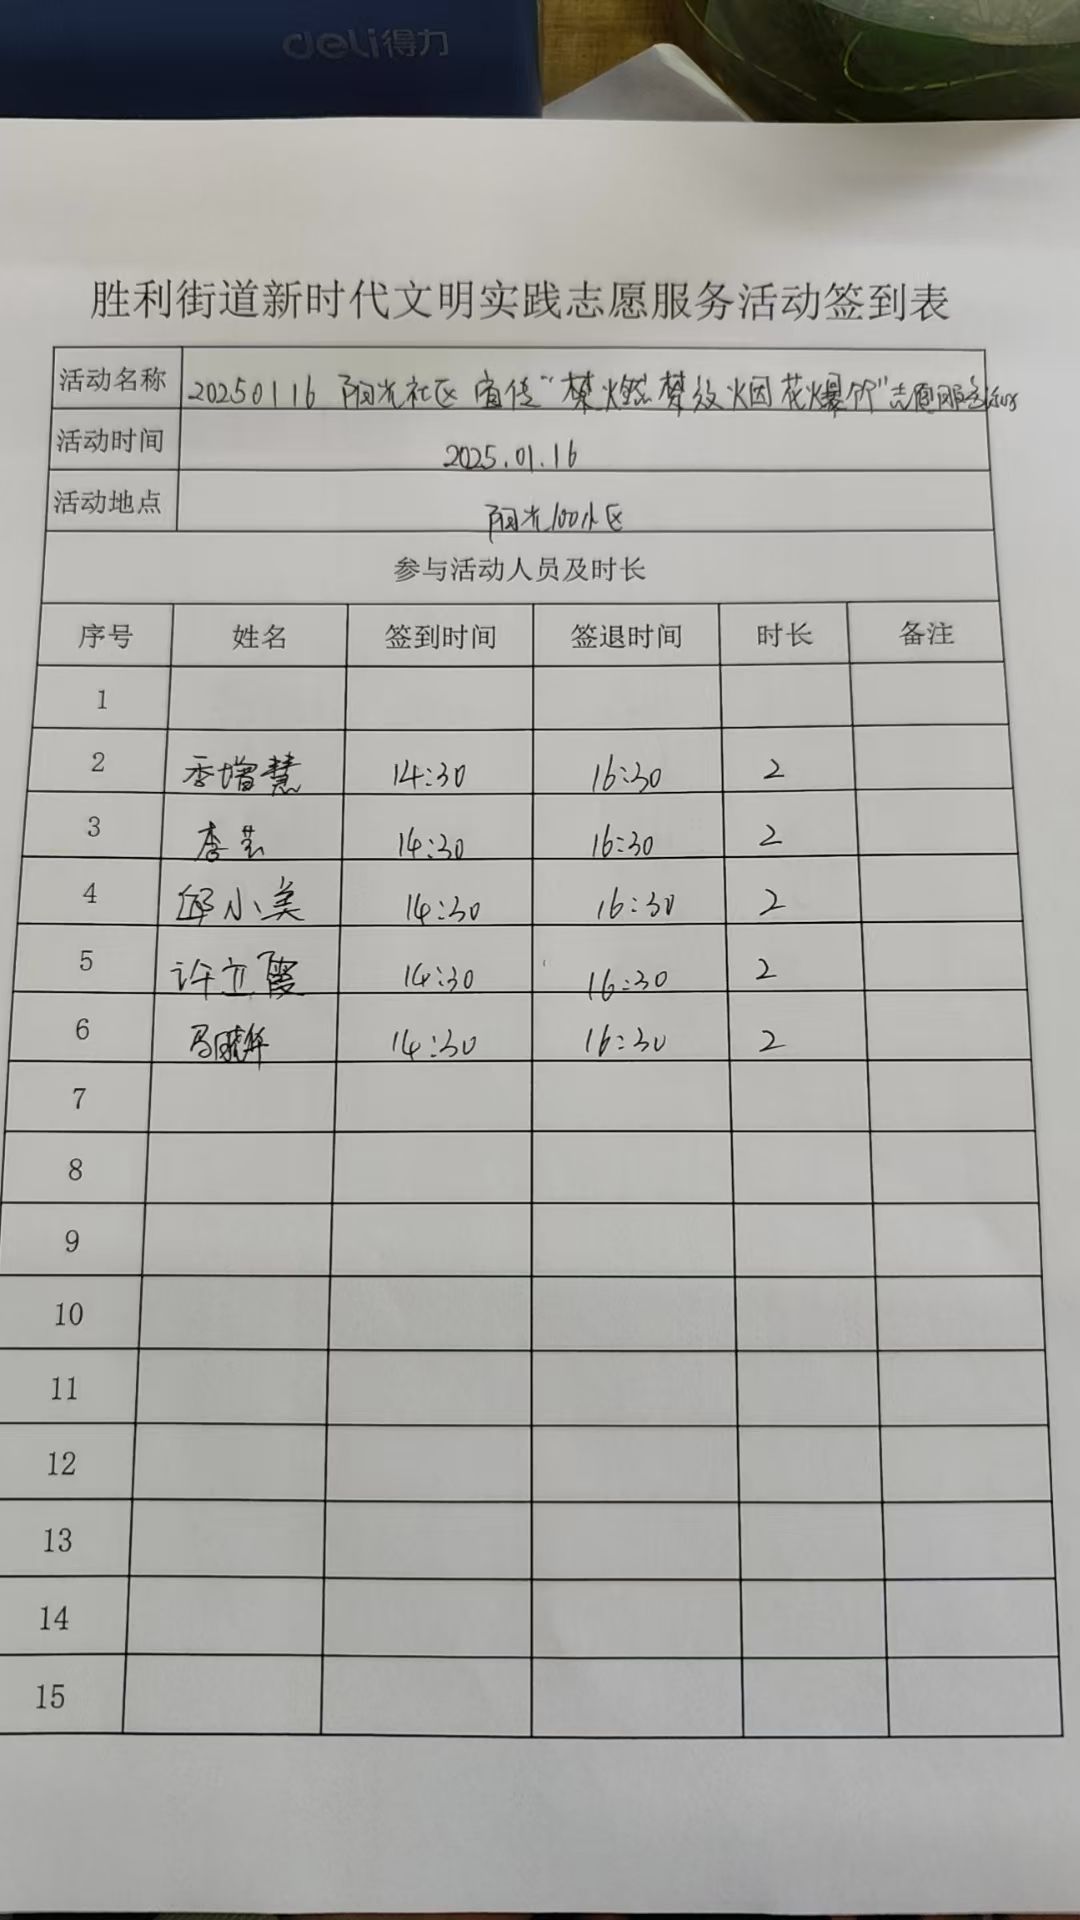 deli得力
胜利街道新时代文明实践志愿服务活动签到表
活动名称 20250116 阳光社区 宣传“禁燃禁放烟花爆竹”志愿服务活动
活动时间 2025.01.16
活动地点 阳光100小区
参与活动人员及时长
序号 姓名 签到时间 签退时间 时长 备注
1
2 季增慧 14:30 16:30 2
3 李芸 14:30 16:30 2
4 邱小美 14:30 16:30 2
5 许立霞 14:30 16:30 2
6 马晓华 14:30 16:30 2
7
8
9
10
11
12
13
14
15